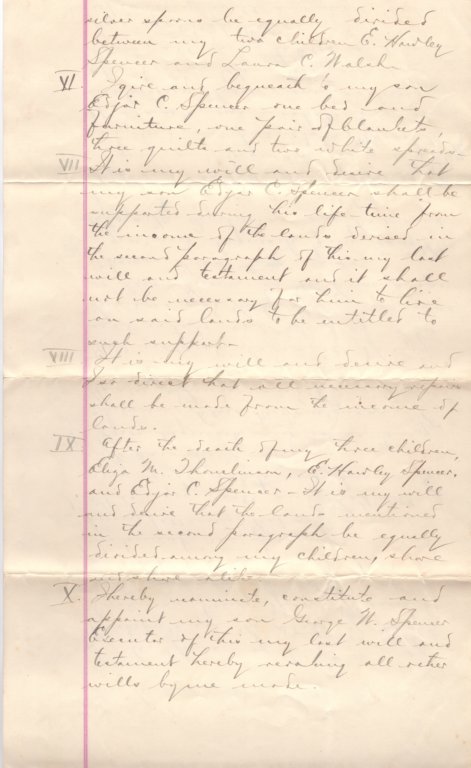 silver spoons be equally divided
between my two children E. Hawley
Spencer and Laura C. Walsh
VI. I give and bequeath to my son
Edgar C. Spencer one bed and
furniture, one pair of blankets,
three quilts and two white spreads-
VII It is my will and desire that
my son Edgar C. Spencer shall be
supported during his life-time from
the income of the lands devised in
the second paragraph of this my last
will and testament and it shall
not be necessary for him to live
on said lands to be entitled to
such support-
VIII It is my will and desire and
I so direct that all necessary repairs
shall be made from the income of
lands.
IX After the death of my three children,
Eliza M. E. Hawley Spencer,
and Edgar C. Spencer - It is my will
and desire that the lands mentioned
in the second paragraph be equally
divided among my children, share
and share alike
X. I hereby nominate, constitute and
appoint my son George W. Spencer
Executor of this my last will and
testament hereby revoking all other
wills by me made.